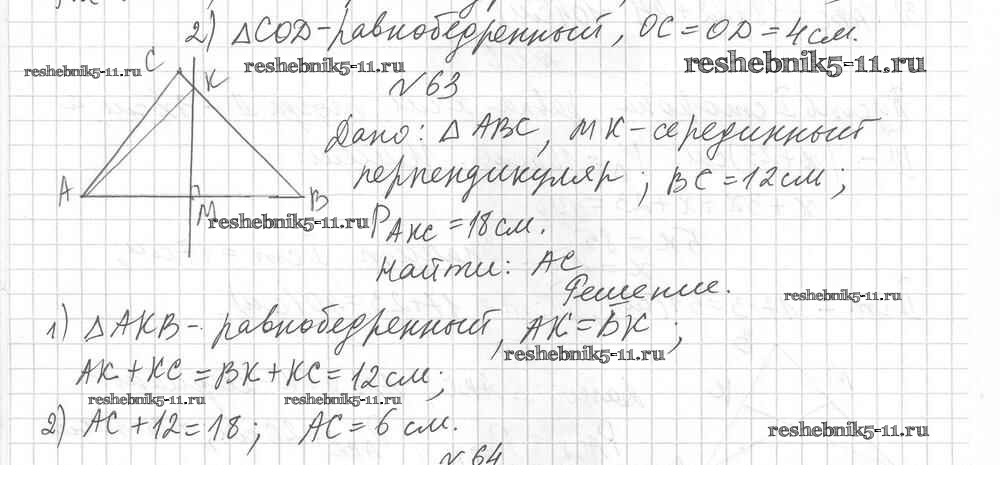 2) △COD-равнобедренный, OC=OD=4см.
reshebnik5-11.ru
reshebnik5-11.ru
reshebnik5-11.ru
C
K
№63
Дано: △ABC, MK-серединный
перпендикуляр; BC=12см;
A
M
B
reshebnik5-11.ru
P AKC =18см.
Найти: AC
Решение.
reshebnik5-11.ru
1) △AKB- равнобедренный, AK=BK;
reshebnik5-11.ru
AK+KC=BK+KC=12см;
reshebnik5-11.ru
reshebnik5-11.ru
2) AC+12=18; AC=6 см.
reshebnik5-11.ru
№64